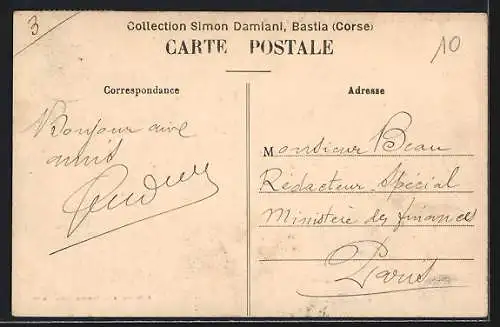 3
Collection Simon Damiani, Bastia (Corse)
CARTE POSTALE
10
Correspondance
Bonjour
amis
Adresse
Monsieur Beau
Rédacteur Spécial
Ministère des finances
Paris